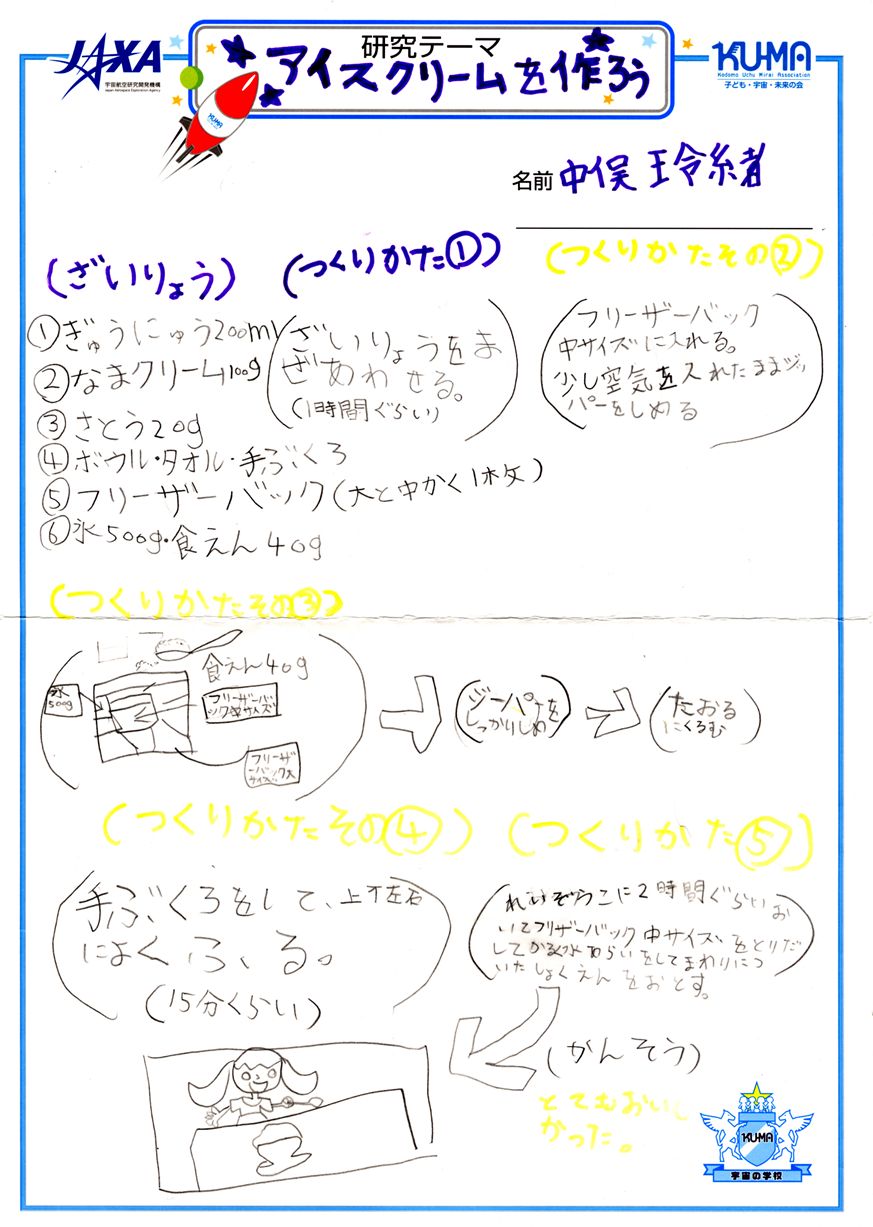 JAXA
宇宙航空研究開発機構
Japan Aerospace Exploration Agency
研究テーマ
アイスクリームを作ろう
KUMA
KU-MA
Kodomo Uchu Mirai Association
子ども・宇宙・未来の会
名前 中俣 玲緒
(ざいりょう)
①ぎゅうにゅう200ml
②なまクリーム100g
③さとう20g
④ボウル・タオル・手ぶくろ
⑤フリーザーバック(大と中かく1枚)
⑥氷500g・食えん40g
(つくりかた①)
ざいりょうをま
ぜあわせる。
(1時間ぐらい)
(つくりかたその②)
フリーザーバック
中サイズに入れる。
少し空気を入れたままジッ
パーをしめる
(つくりかたその③)
食えん40g
氷
500g
フリーザーバ
ック中サイズ
フリーザ
ーバック大
サイズ
ジーパーを
しっかりしめ
たおる
にくるむ
(つくりかたその④)
手ぶくろをして、上下左右
によくふる。
(15分くらい)
(つくりかた⑤)
れいぞうこに2時間ぐらいお
いてフリザーバック中サイズをとりだ
してかるく水あらいをしてまわりにつ
いたしょくえんをおとす。
(かんそう)
とてもおいし
かった。
KU-MA
宇宙の学校